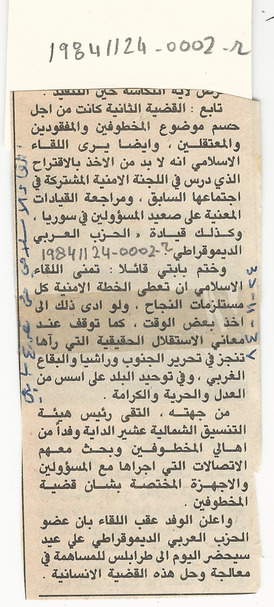 19841124-0002-2
تابع : القضية الثانية كانت من اجل
حسم موضوع المخطوفين والمفقودين
والمعتقلين ، وايضا يرى اللقاء
الاسلامي انه لا بد من الاخذ بالاقتراح
الذي درس في اللجنة الامنية المشتركة في
اجتماعها السابق ، ومراجعة القيادات
المعنية على صعيد المسؤولين في سوريا ،
وكذلك قيادة « الحزب العربي
الديموقراطي
19841124-0002-2
وختم بابتي قائلا : تمنى اللقاء
الاسلامي ان تعطى الخطة الامنية كل
مستلزمات النجاح ، ولو ادى ذلك الى
اخذ بعض الوقت ، كما توقف عند
معاني الاستقلال الحقيقية التي رآها
تنجز في تحرير الجنوب وراشيا والبقاع
الغربي ، وفي توحيد البلد على اسس من
العدل والحرية والكرامة .
من جهته ، التقى رئيس هيئة
التنسيق الشمالية عشير الداية وفداً من
اهالي المخطوفين وبحث معهم
الاتصالات التي اجراها مع المسؤولين
والاجهزة المختصة بشان قضية
المخطوفين .
واعلن الوفد عقب اللقاء بان عضو
الحزب العربي الديموقراطي علي عيد
سيحضر اليوم الى طرابلس للمساهمة في
معالجة وحل هذه القضية الانسانية .